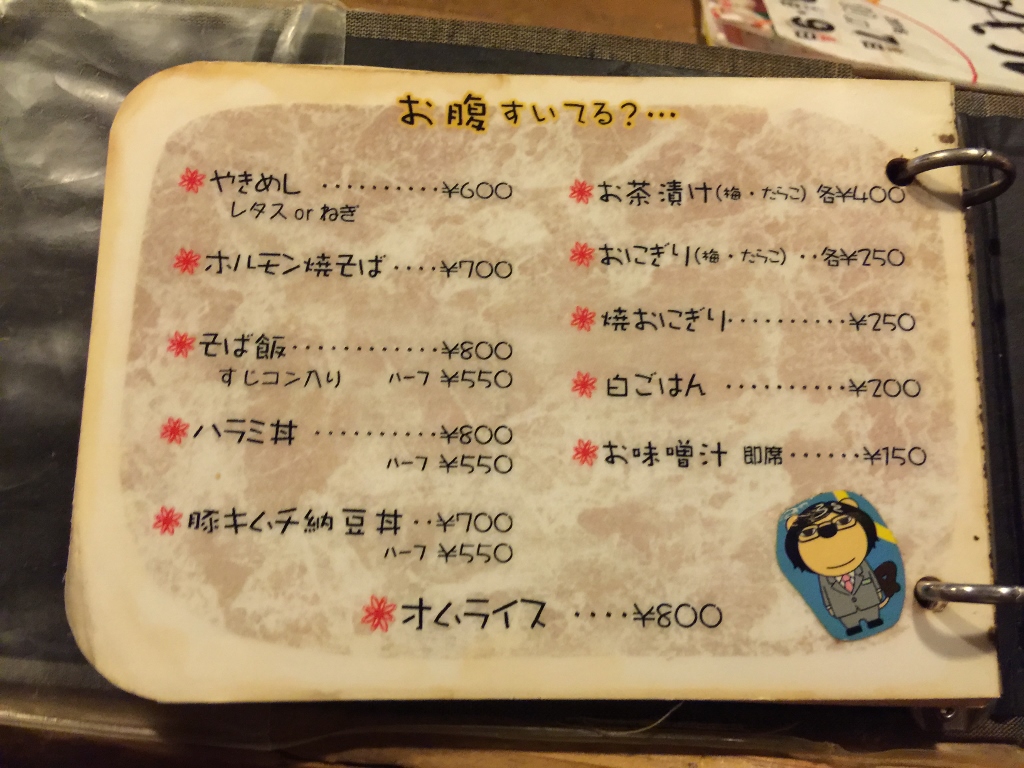 お腹すいてる?…
やきめし ··········¥600
レタス or ねぎ
ホルモン焼そば ····¥700
そば飯············¥800
すじコン入り ハーフ ¥550
ハラミ丼 ··········¥800
ハーフ ¥550
豚キムチ納豆丼 ··¥700
ハーフ ¥550
お茶漬け(梅・たらこ) 各¥400
おにぎり(梅・たらこ) ··各¥250
焼おにぎり··········¥250
白ごはん ··········¥200
お味噌汁 即席······¥150
オムライス ····¥800